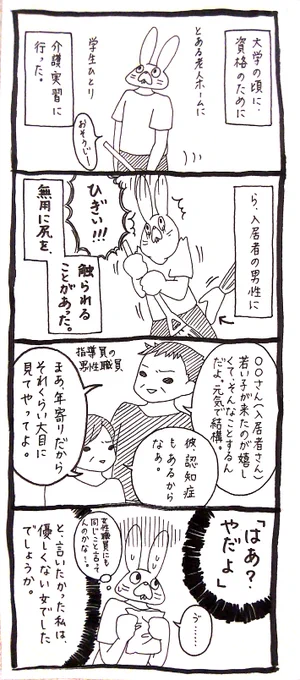 大学の頃に、
資格のために
とある老人ホームに
学生ひとり
介護実習に
行った。
おそうじ〜
ら、入居者の男性に
ひぎぃ!!!
無用に尻を、
触られる
ことがあった。
〇〇さん(入居者さん)
若い子が来たのが嬉し
くて、そんなことするん
だよ。元気で結構。
指導員の
男性職員
彼、認知症
もあるから
なぁ。
まあ、年寄りだから
それくらい大目に
見てやってよ。
「はあ?
やだよ」
う゛……
女性職員にも
同じこと言って
んのかな!。
と、言いたかった私は、
優しくない女でした
でしょうか。